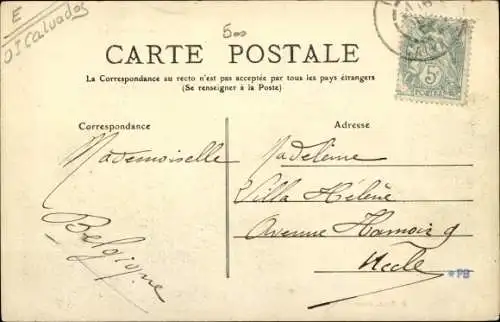 E
01 Calvados
500
CARTE POSTALE
La Correspondance au recto n'est pas acceptée par tous les pays étrangers
(Se renseigner à la Poste)
Correspondance
Adresse
Mademoiselle
Madeleine
Villa Hélène
Avenue Hamoir 9
Uccle
Belgique
5
PB